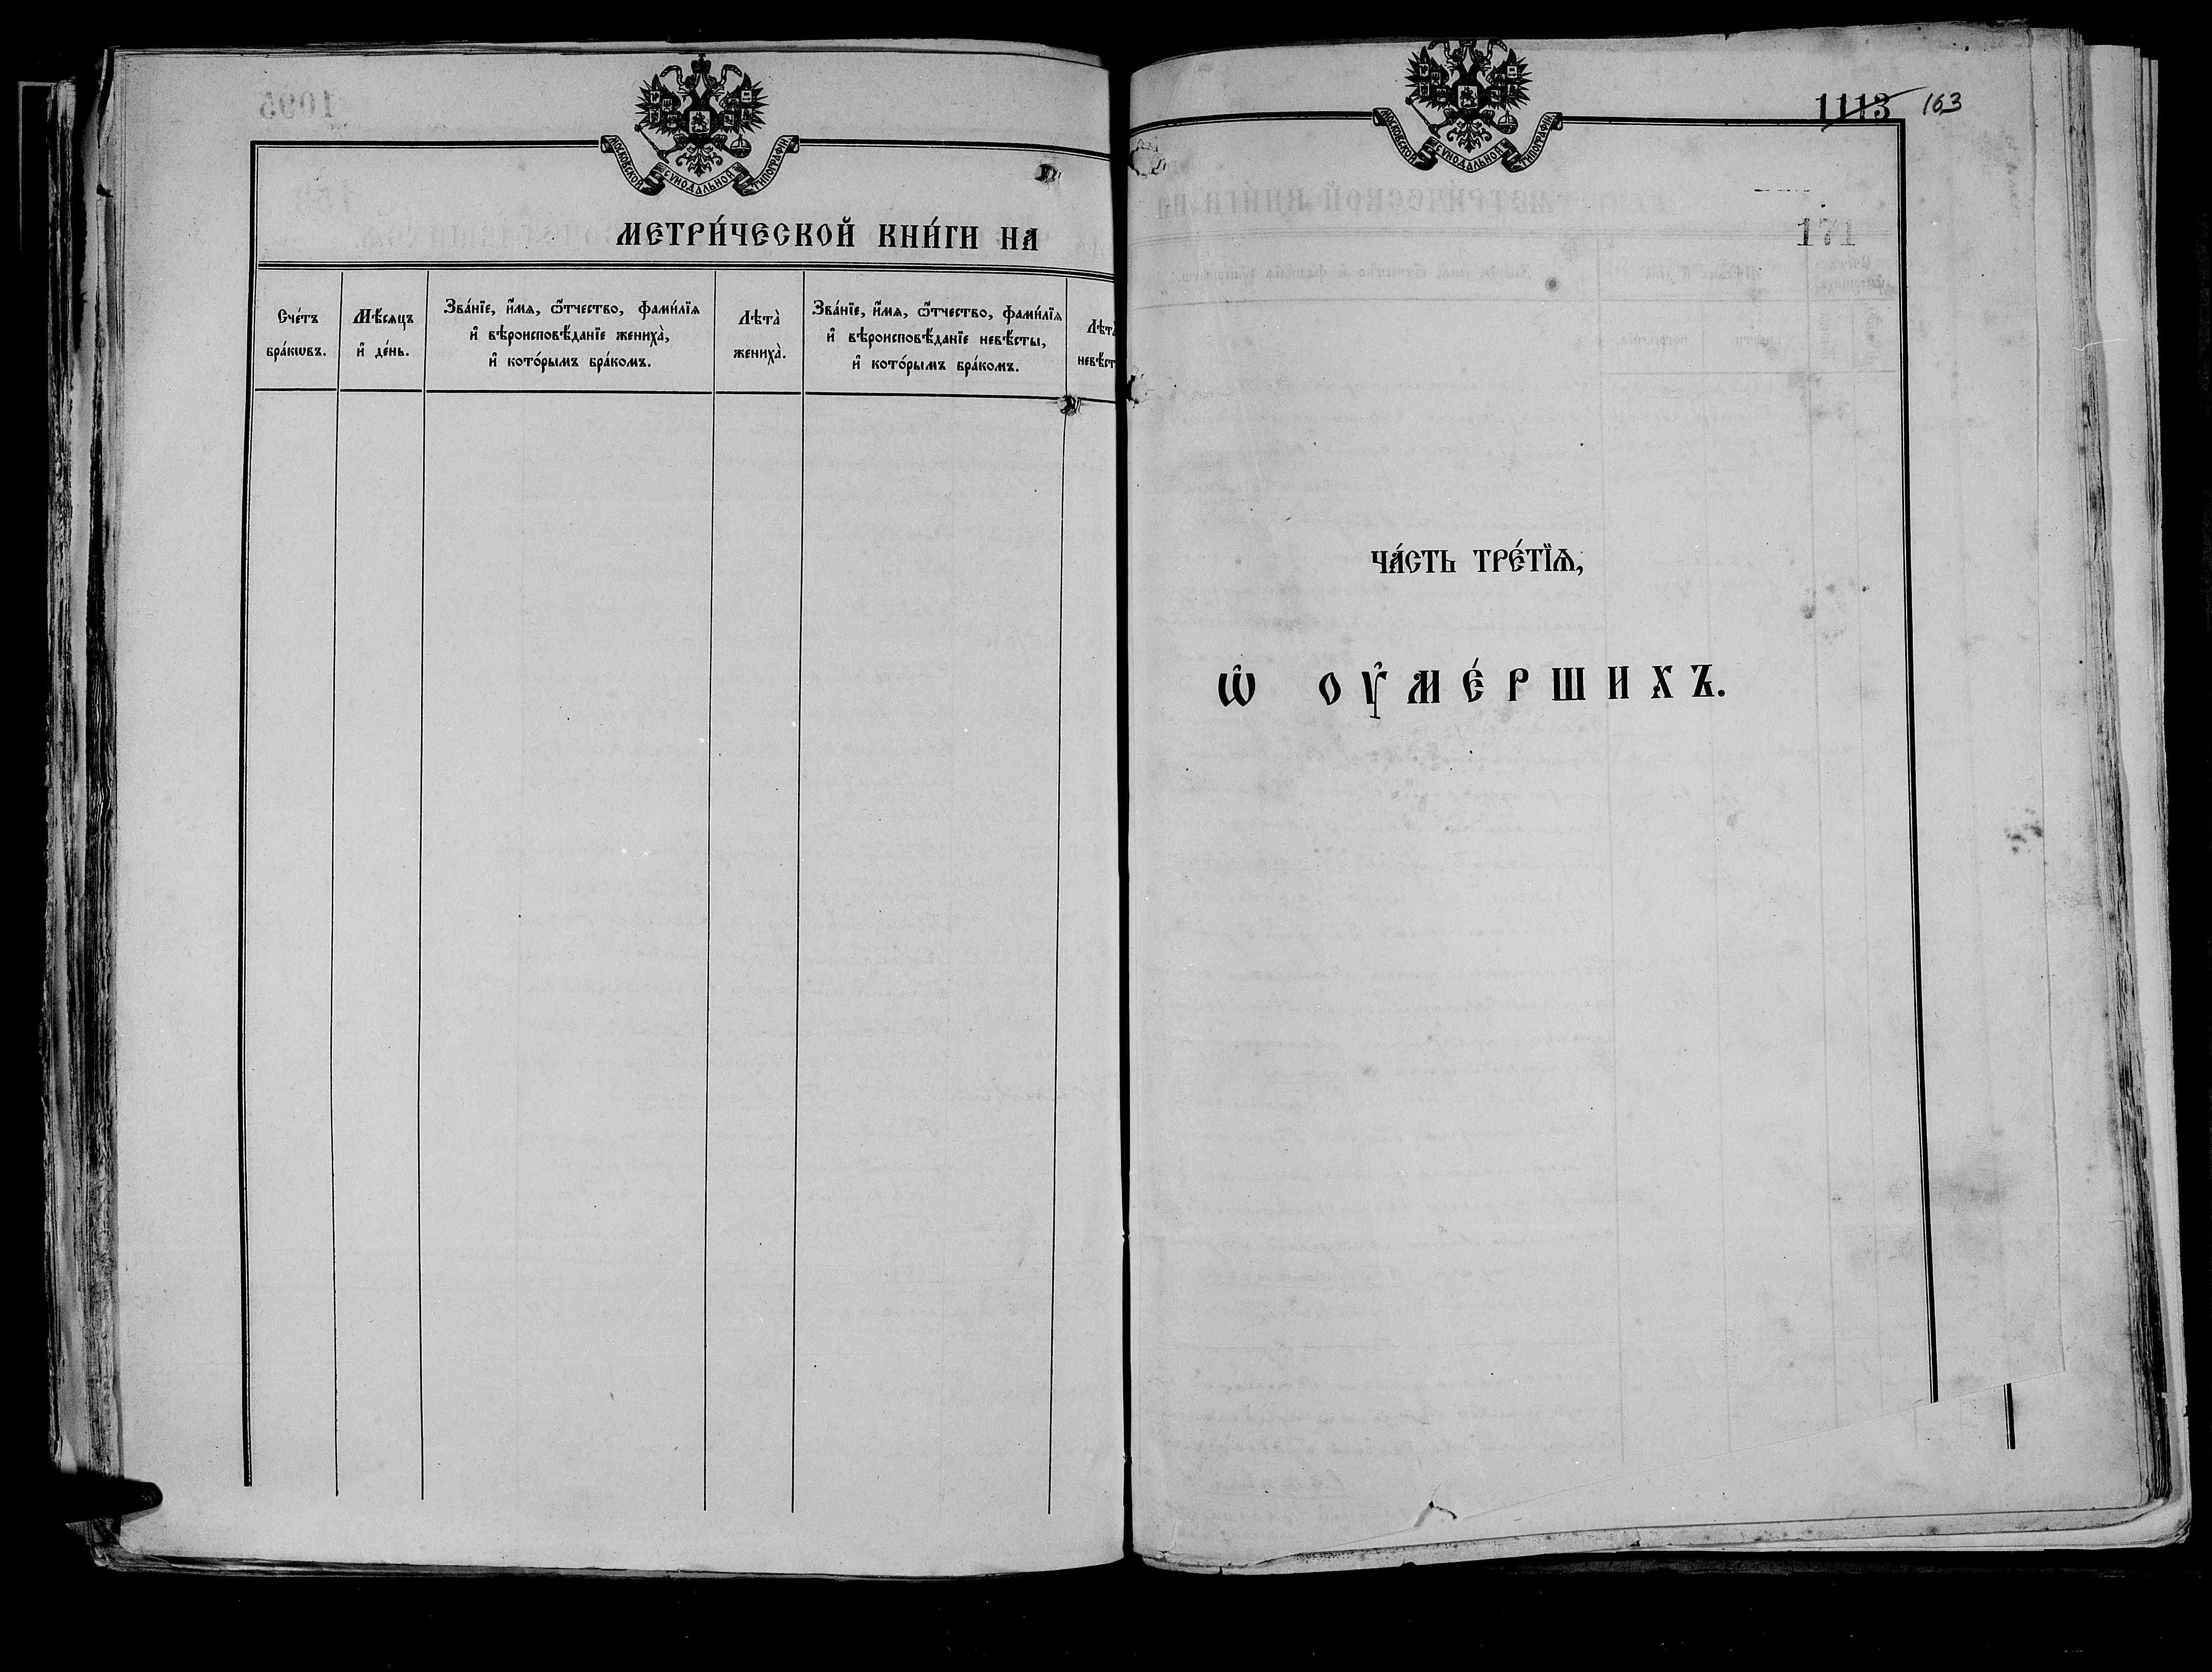 МОСКОВСКОЙ СѴНОДАЛЬНОЙ ТИПОГРАФІИ
МЕТРИ́ЧЕСКОЙ КНИ́ГИ НА
Сче́тъ
бра́кѡвъ.
Мѣ́сяцъ
и҆ де́нь.
Зва́нїе, и҆́мѧ, ѻ҆́тчество, фами́лїѧ
и҆ вѣроисповѣ́данїе жениха̀,
и҆ кото́рымъ бра́комъ.
Лѣта̀
жениха̀.
Зва́нїе, и҆́мѧ, ѻ҆́тчество, фами́лїѧ
и҆ вѣроисповѣ́данїе невѣ́сты,
и҆ кото́рымъ бра́комъ.
Лѣта̀
невѣ́ст
МОСКОВСКОЙ СѴНОДАЛЬНОЙ ТИПОГРАФІИ
1113 163
171
ЧА́СТЬ ТРЕ́ТЇѦ,
Ѡ҆ ОУ҆МЕ́РШИХЪ.